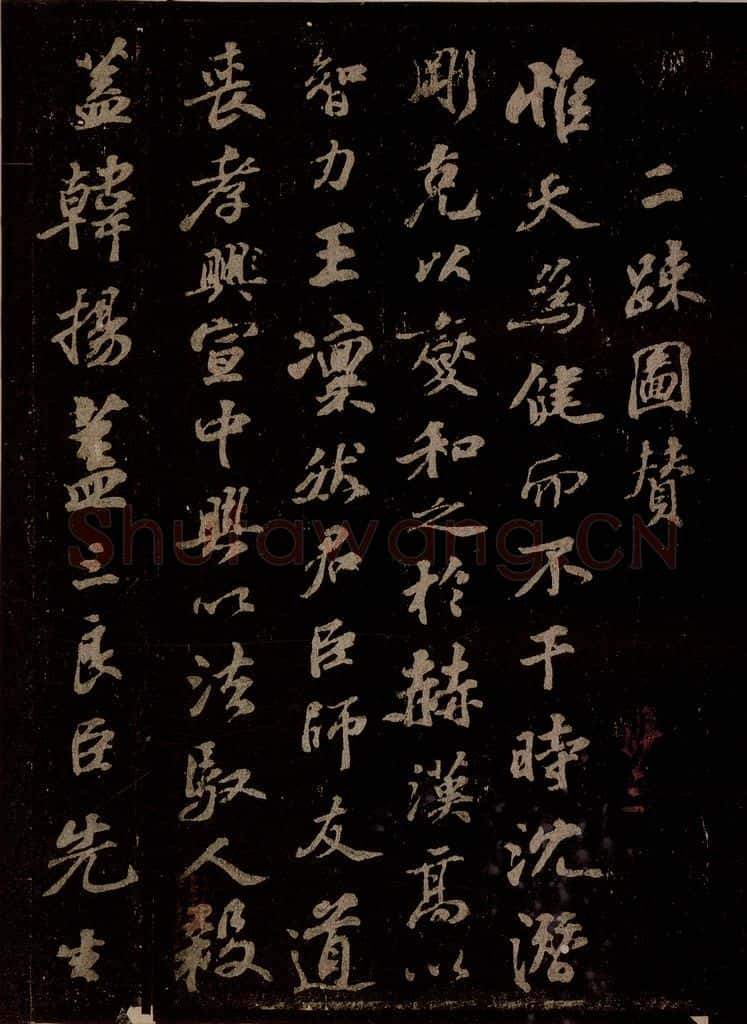 二疎圖贊
惟天爲健而不干時沈潛
剛克以燮和之於赫漢高以
智力王凜然君臣師友道
喪孝興宣中興以法馭人殺
蓋韓楊蓋三良臣先生
Shufawang.CN